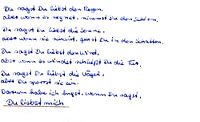 Du sagst Du liebst den Regen.
aber wenn es regnet, nimmst Du den Schirm.
Du sagst Du liebst die Sonne.
aber wenn sie scheint, gehst Du in den Schatten.
Du sagst Du liebst den Wind.
aber wenn es windet schließt Du die Tür.
Du sagst Du liebst die Vögel.
aber Du sperrst sie ein.
Darum habe ich Angst, wenn Du sagst:
Du liebst mich